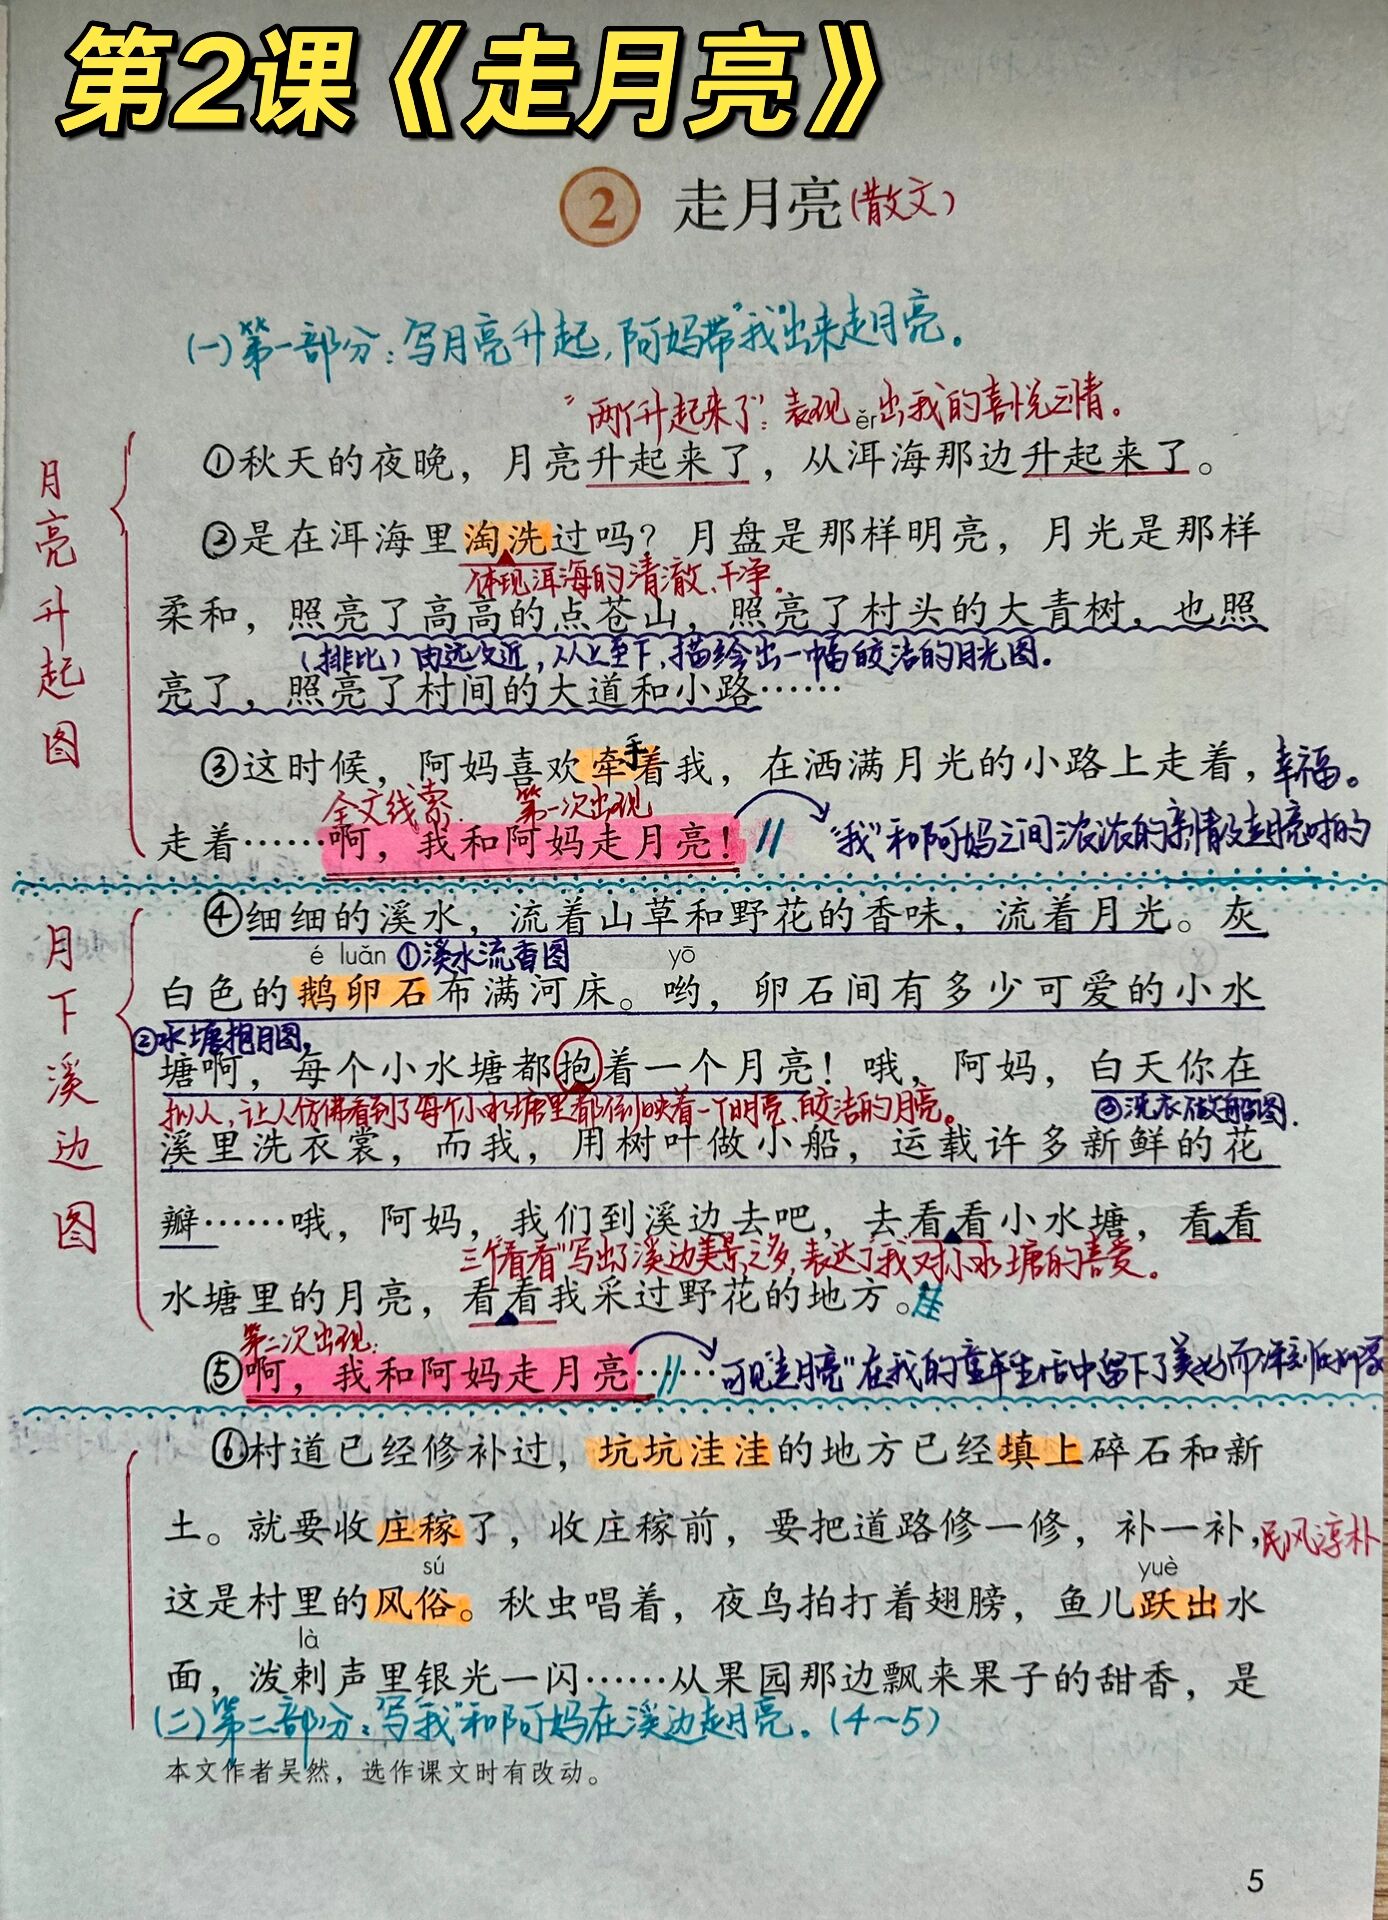 第2课《走月亮》
2 走月亮(散文)
(一)第一部分:写月亮升起,阿妈带"我"出来走月亮。
"两个升起来了":表现出我的喜悦之情。
ěr
①秋天的夜晚，月亮升起来了，从洱海那边升起来了。
月亮升起图
②是在洱海里淘洗过吗？月盘是那样明亮，月光是那样
体现洱海的清澈、干净。
柔和，照亮了高高的点苍山，照亮了村头的大青树，也照
(排比)由远及近,从上至下,描绘出一幅皎洁的月光图.
亮了，照亮了村间的大道和小路……
手
③这时候，阿妈喜欢牵着我，在洒满月光的小路上走着，幸福。
全文线索. 第一次出现
走着……啊，我和阿妈走月亮！// "我"和阿妈之间浓浓的亲情及走月亮时的
④细细的溪水，流着山草和野花的香味，流着月光。灰
月下溪边图
é luǎn ①溪水流香图 yō
白色的鹅卵石布满河床。哟，卵石间有多少可爱的小水
②水塘抱月图,
塘啊，每个小水塘都抱着一个月亮！哦，阿妈，白天你在
拟人,让人仿佛看到了每个小水塘里都倒映着一个明亮、皎洁的月亮。 ③洗衣做船图.
溪里洗衣裳，而我，用树叶做小船，运载许多新鲜的花
瓣……哦，阿妈，我们到溪边去吧，去看看小水塘，看看
三个"看看"写出了溪边美景之多,表达了"我"对小水塘的喜爱。
水塘里的月亮，看看我采过野花的地方。
第二次出现:
⑤啊，我和阿妈走月亮……// 可见"走月亮"在我的童年生活中留下了美好而深刻的印象
⑥村道已经修补过，坑坑洼洼的地方已经填上碎石和新
土。就要收庄稼了，收庄稼前，要把道路修一修，补一补，民风淳朴
sú yuè
这是村里的风俗。秋虫唱着，夜鸟拍打着翅膀，鱼儿跃出水
là
面，泼剌声里银光一闪……从果园那边飘来果子的甜香，是
(二)第二部分:写"我"和阿妈在溪边走月亮。(4~5)
本文作者吴然，选作课文时有改动。
5